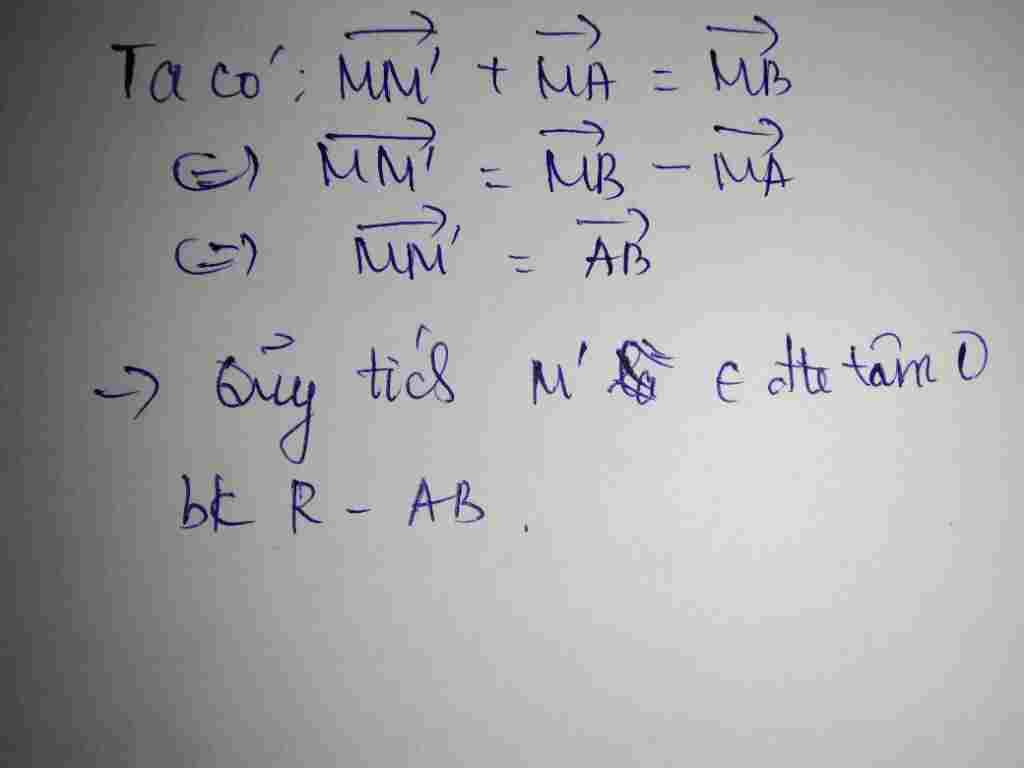 Ta có: MM' + MA = MB
<=> MM' = MB - MA
<=> MM' = AB
-> Qũy tích M' ∈ đtr tâm O
bk R - AB.